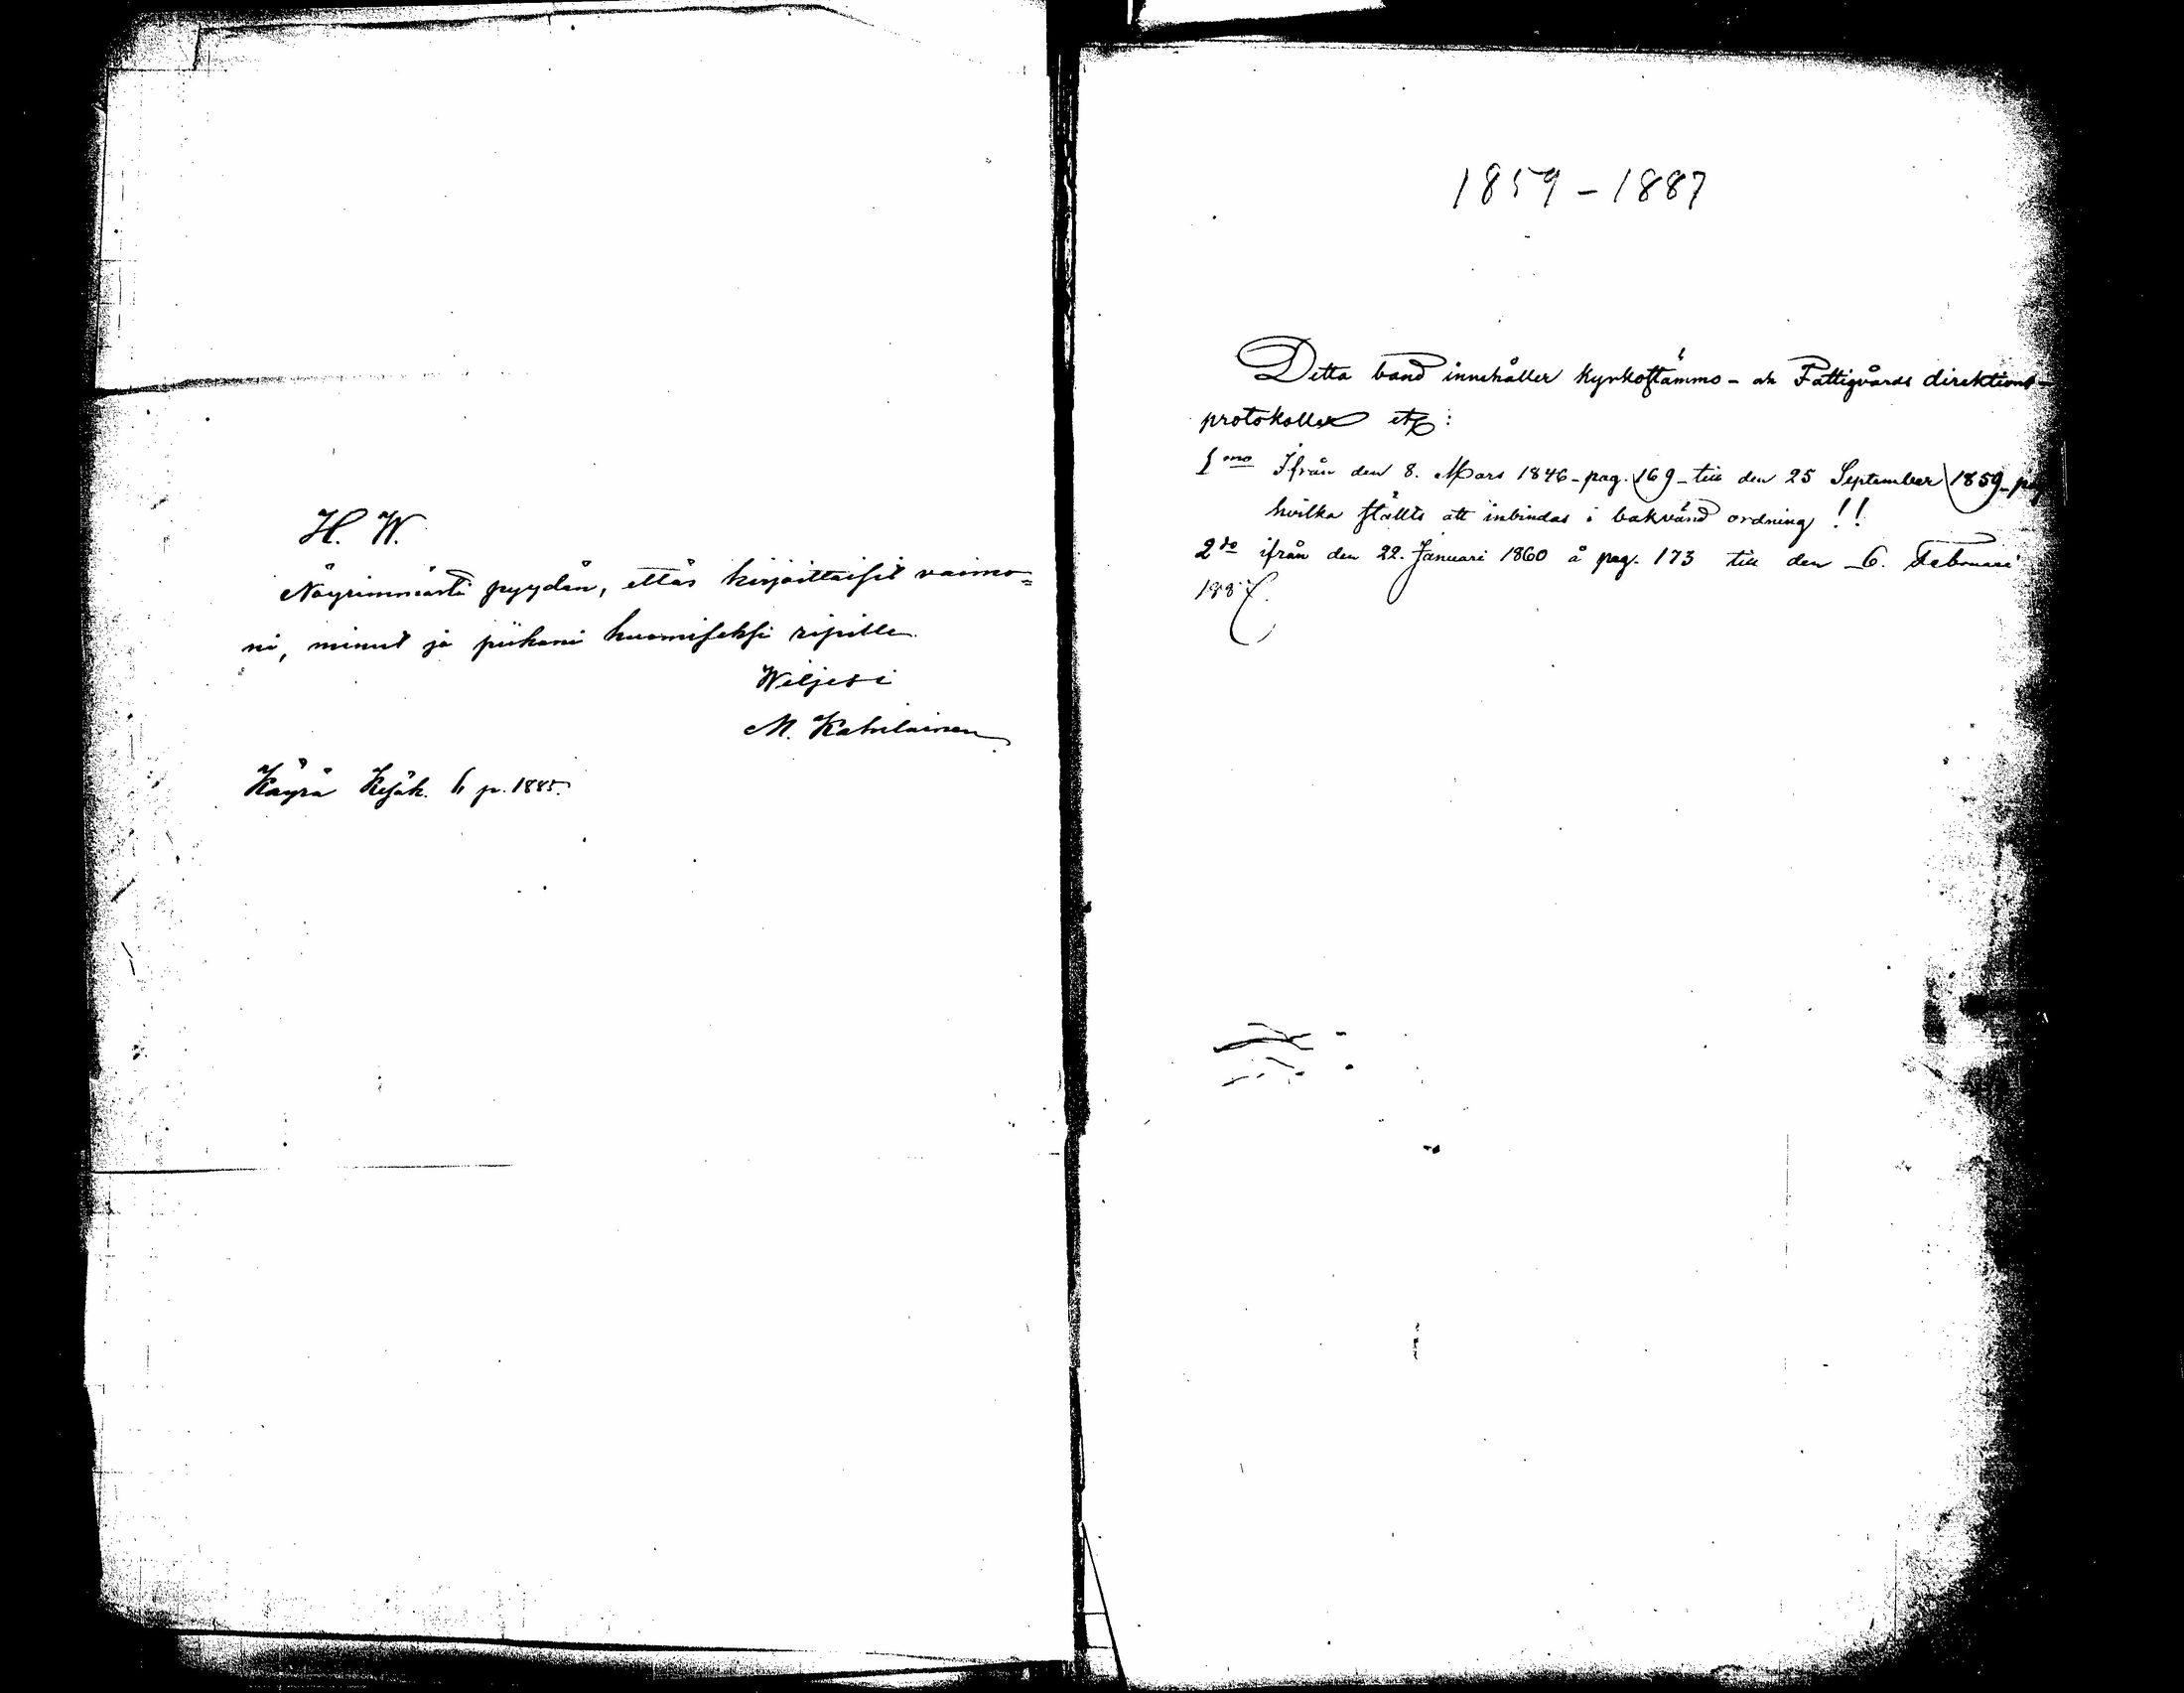 H. W.
Nöyrimmästi pyydän, ettäs kirjoittaisit vaimo=
ni, minut ja piikani huomiseksi ripille.
Weljesi
M. Kahilainen
Käyrä Kesäk. 6 p. 1885.
1859-1887
Detta band innehåller Kyrkostämmo- och Fattigvårds direktions-
protokoller etc:
1mo Ifrån den 8. Mars 1846 - pag. 169 - till den 25 September 1859 - pag
hvilka ställts att inbindas i bakvänd ordning !!
2do ifrån den 22. Januari 1860 å pag. 173 till den 6. Februari
1887.